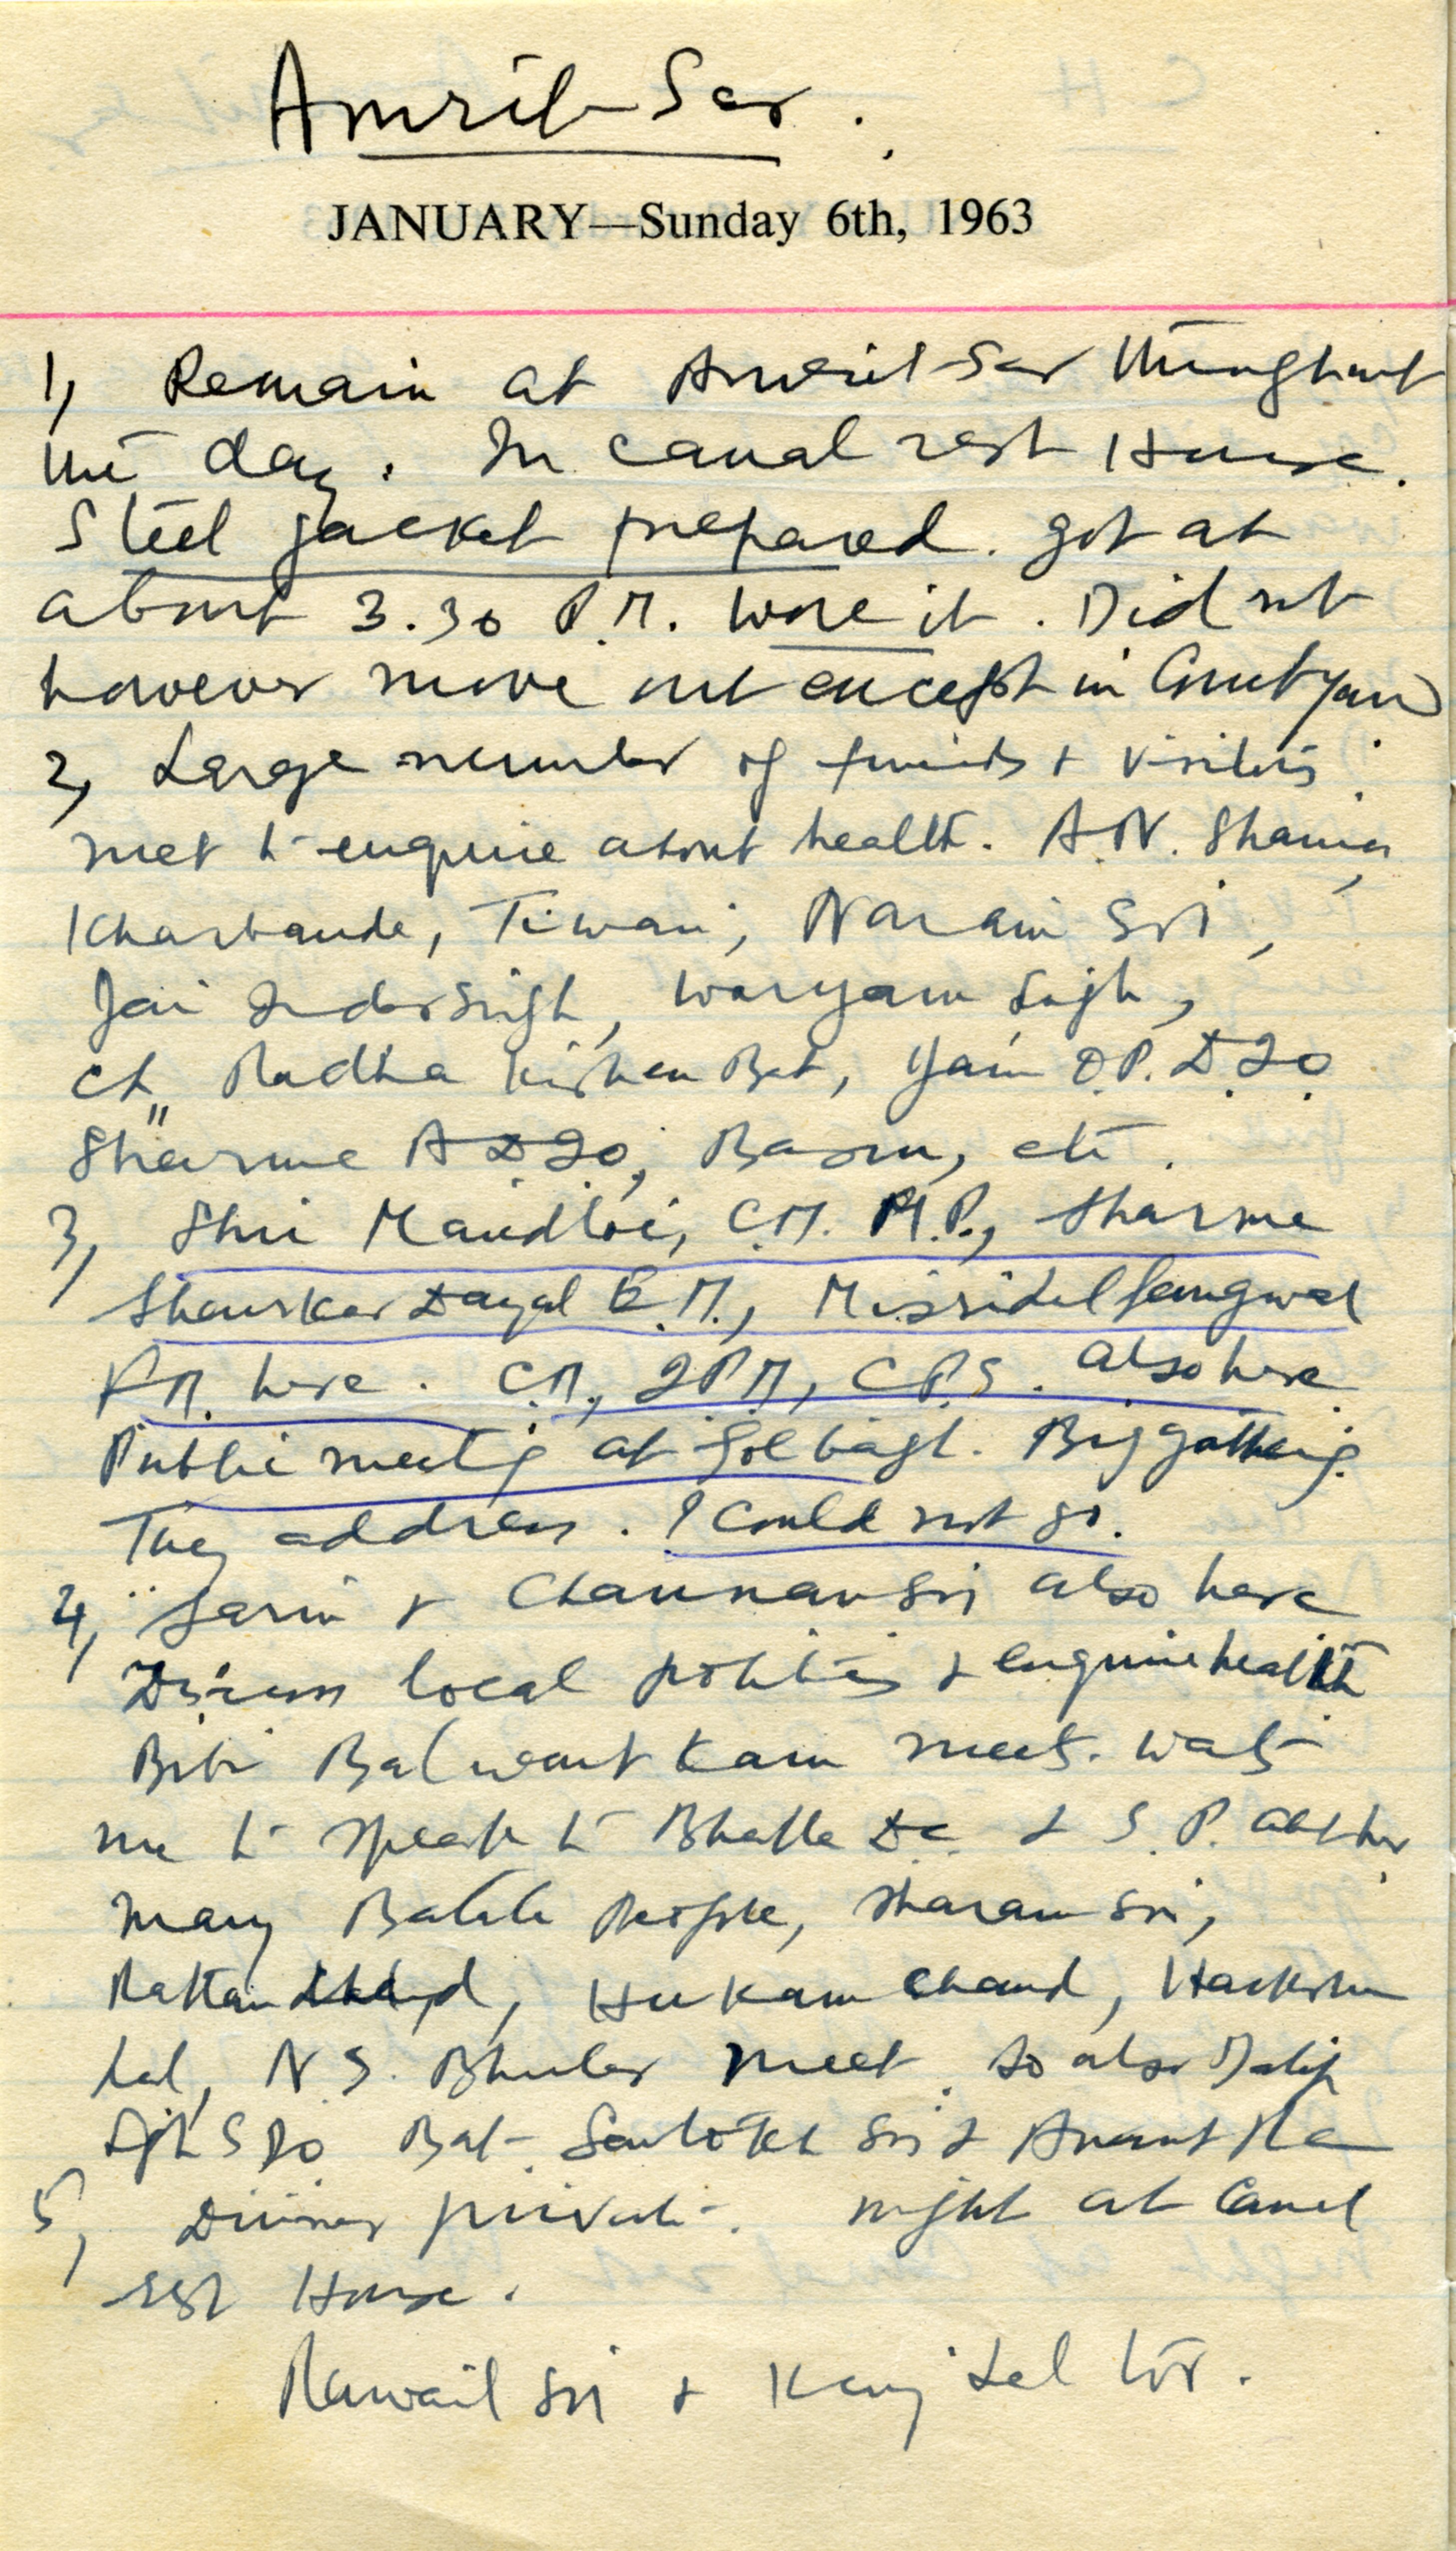 Amrit-Sar.
JANUARY—Sunday 6th, 1963
1, Remain at Amrit-Sar throughout
the day. In canal rest House.
Steel jacket prepared. got at
about 3.30 P.M. wore it. Did not
however move out except in Courtyard
2, Large number of friends & visitors
met to enquire about health. A.N. Sharma,
Kharbanda, Tiwari, Narain Sri,
Jai Inder Singh, Waryam Singh,
Ch Radha Kishen Bat, Jain O.P. D.I.O.
Sharma A D I O,
3, Shri Mandloi, C.M. M.P., Sharma
Shanker Dayal M., Misrilal Gangwal
F.M. here. C.M, I P M, C P S. also here
Public meeting at Gol bagh. Big gathering.
They address. I could not go.
4, Sarin & Channan Sri also here
Discuss local politics & enquire health
Bibi Balwant Kaur meets. wants
me to speak to Bhalla D.C. & S.P. about her
many Batala People, Sharam Sri,
Rattan, Hukam Chand,
Lal, N.S. Bhuller meet. so also Dalip
Sgh S D O Bat. Santokh Sri & Anant Ra
5, Dinner private. night at Canal
rest House.
Rawail Sri & Lal too.